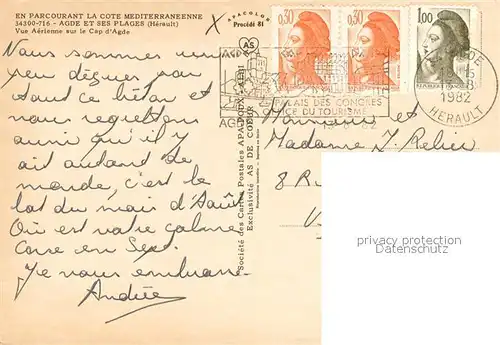 EN PARCOURANT LA COTE MEDITERRANEENNE
34300-716 - AGDE ET SES PLAGES (Hérault)
Vue Aérienne sur le Cap d'Agde
APACOLOR
Procédé 81
Nous sommes un
peu déçues par
tout ce béton et
nous regrettons
aussi qu'il y
ait autant de
monde, c'est le
lot du mois d'Août
Où est votre calme
Corse en Sept.
Je vous embrasse
Andrée
Société des Cartes Postales APA-POUX - ALBI
Exclusivité AS DE COEUR
AS
0,30
0,30
1,00
AGDE
PALAIS DES CONGRES
OFFICE DU TOURISME
1982
HERAULT
Monsieur et
Madame J. Relier
8 Ru
privacy protection
watermark